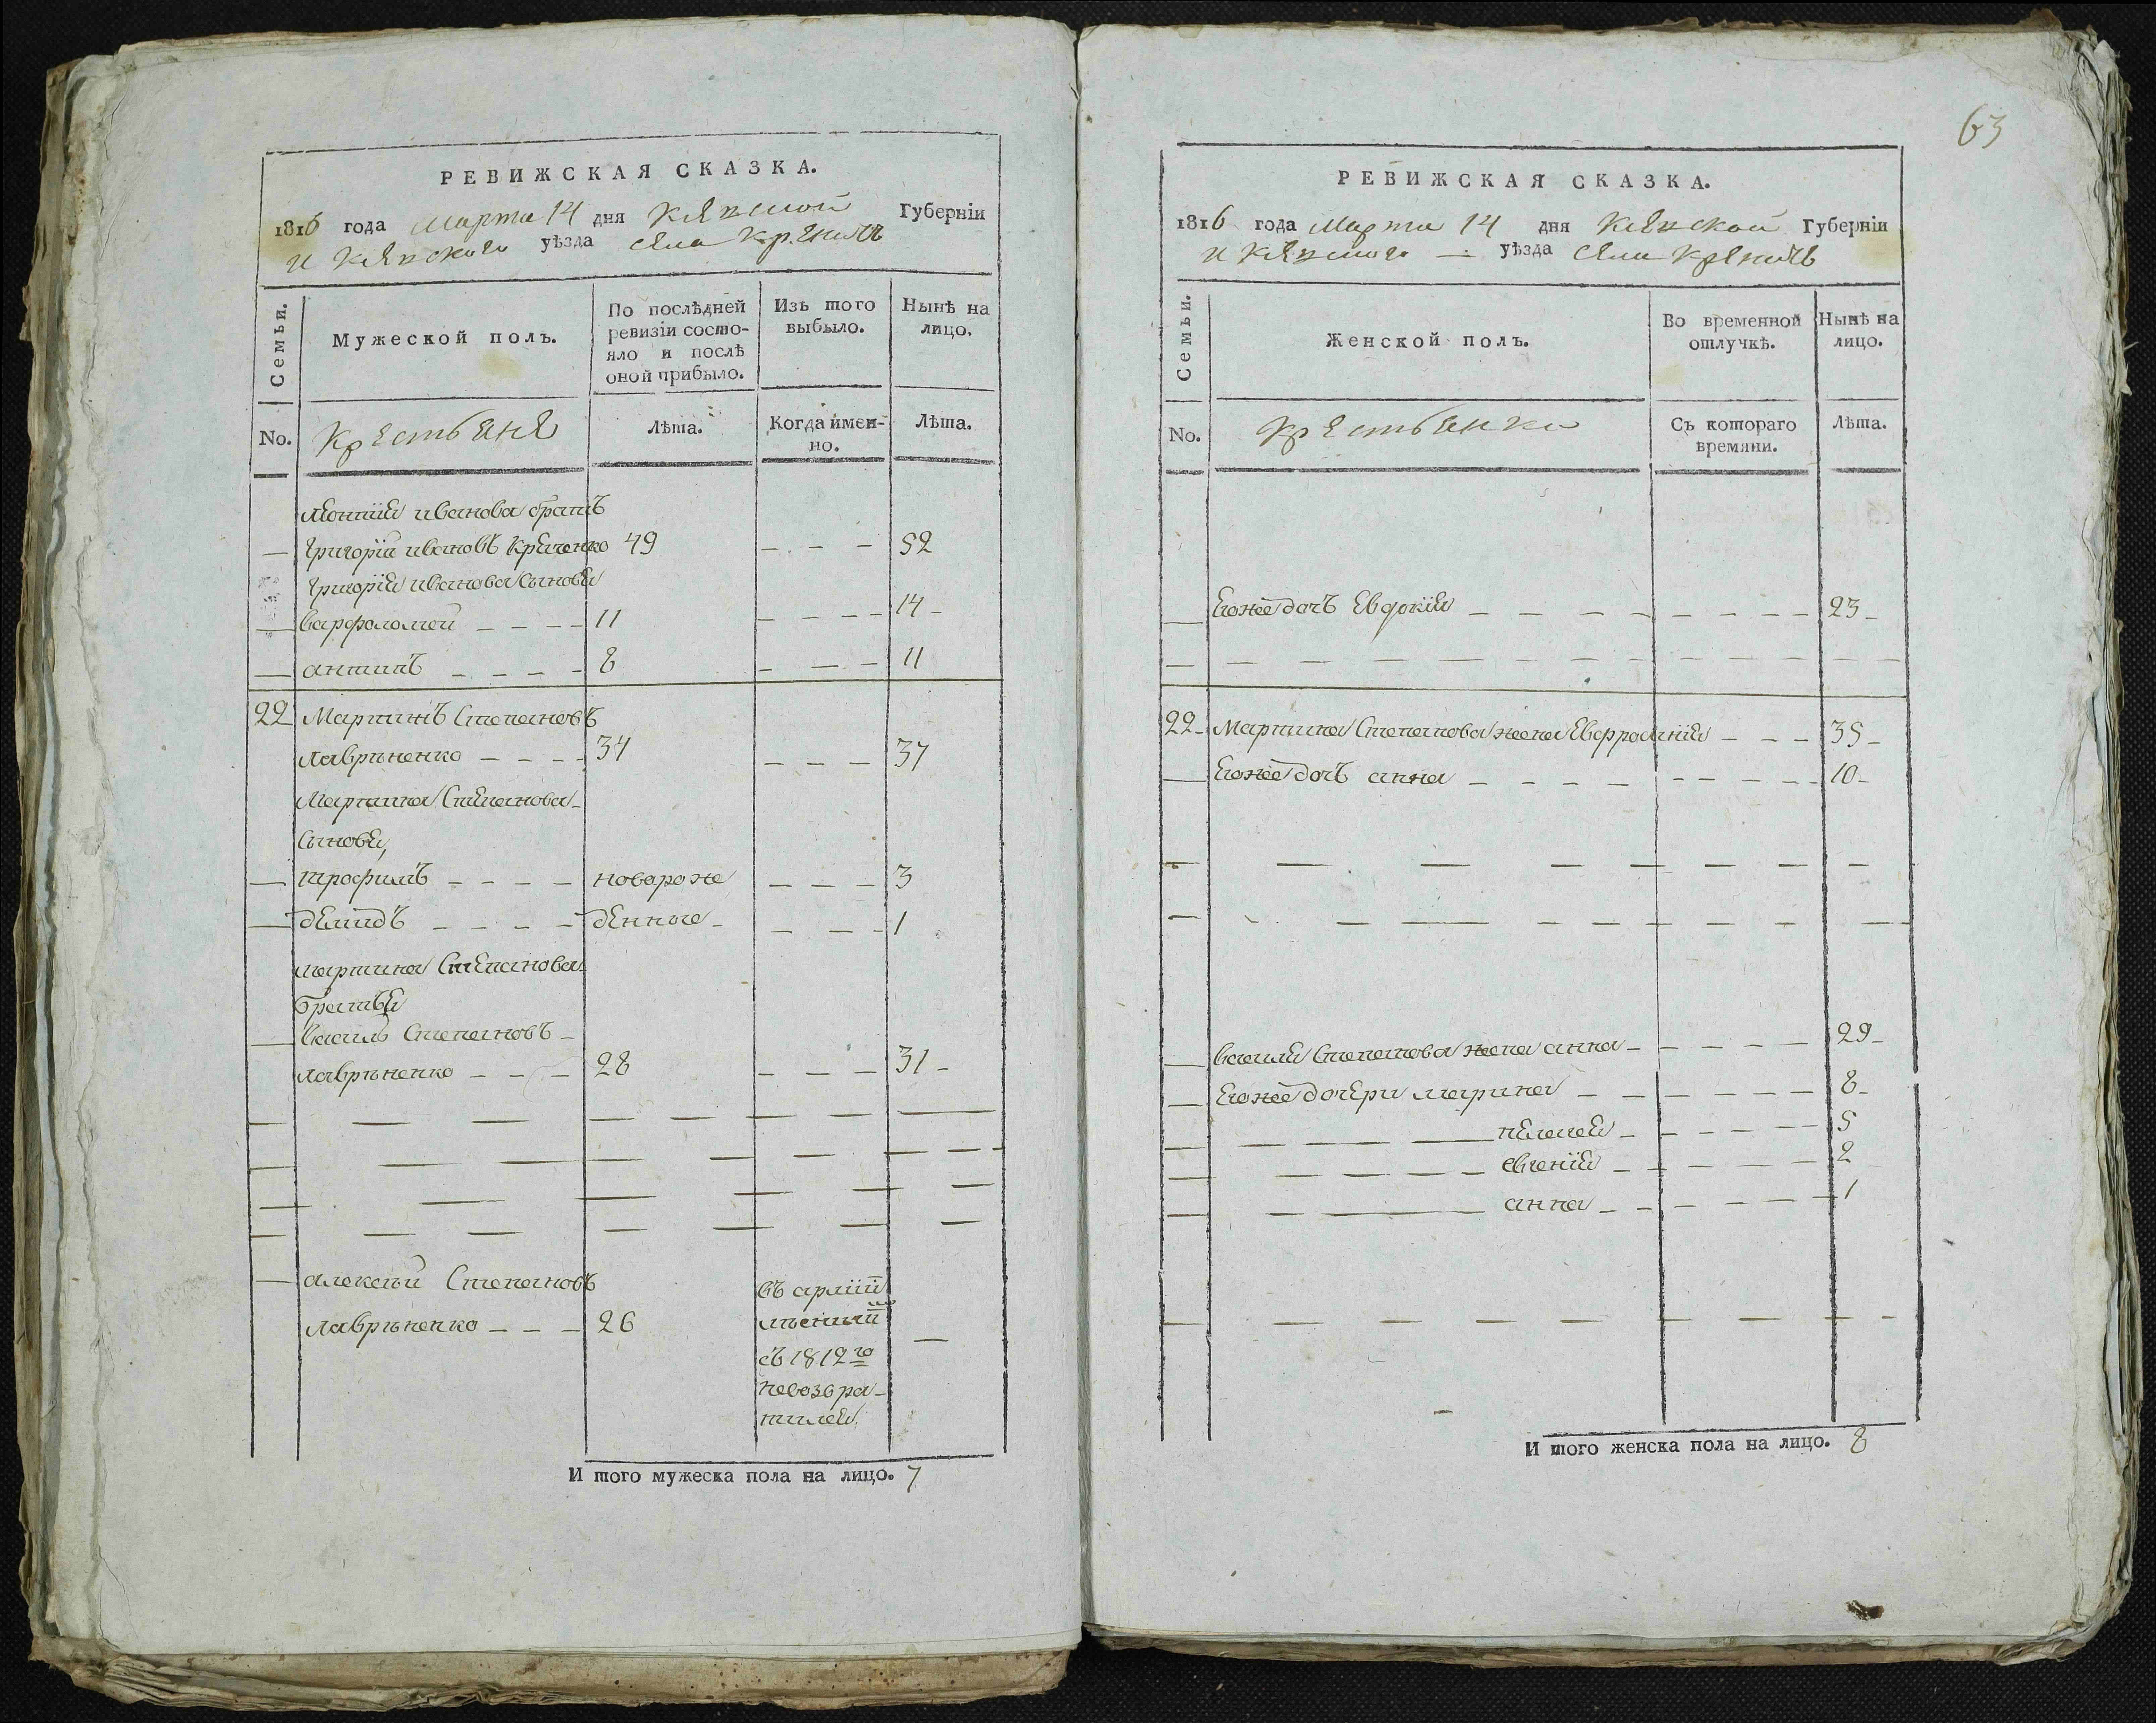 63
РЕВИЖСКАЯ СКАЗКА.
1816 года Марта 14 дня Киевской Губерніи
и Киевского уѣзда села
Семьи.
Мужеской полъ.
По послѣдней ревизіи состояло и послѣ оной прибыло.
Изъ того выбыло.
Нынѣ на лицо.
No.
Крестьяне
Лѣта.
Когда имен-
но.
Лѣта.
иванова братъ
— григорій ивановъ 49 — — — 52
григорія иванова сыновья
— варфоломей — — — — 11 — — — — 14 —
— антипъ — — — — 8 — — — 11
22 Мартинъ Степановъ
лавриненко — — — — 34 — — — 37
Мартина Степанова
сыновья,
— трофимъ — — — — новорож — — — 3
— демидъ — — — — денные — — — — 1
мартина Степанова
братья
— василь Степановъ —
лавриненко — — — 28 — — — 31 —
— алексей Степановъ
лавриненко — — — 26
въ арміи
съ 1812го
невозвра-
тился
—
И того мужеска пола на лицо. 7
РЕВИЖСКАЯ СКАЗКА.
1816 года Марта 14 дня Киевской Губерніи
и Киевского — уѣзда села
Семьи.
Женской полъ.
Во временной отлучкѣ.
Нынѣ на лицо.
No.
Крестьянки
Съ котораго
времяни.
Лѣта.
— Егоже дочь Евдокія — — — 23 —
22 Мартина Степанова жена Евфросинія — — — 35 —
— Егоже дочь анна — — — — 10 —
— василя Степанова жена анна — — — — 29 —
— Егоже дочери марина — — — — 8 —
— пелагея — — — — 5
— евгенія — — — — 2
— анна — — — — 1
И того женска пола на лицо. 8